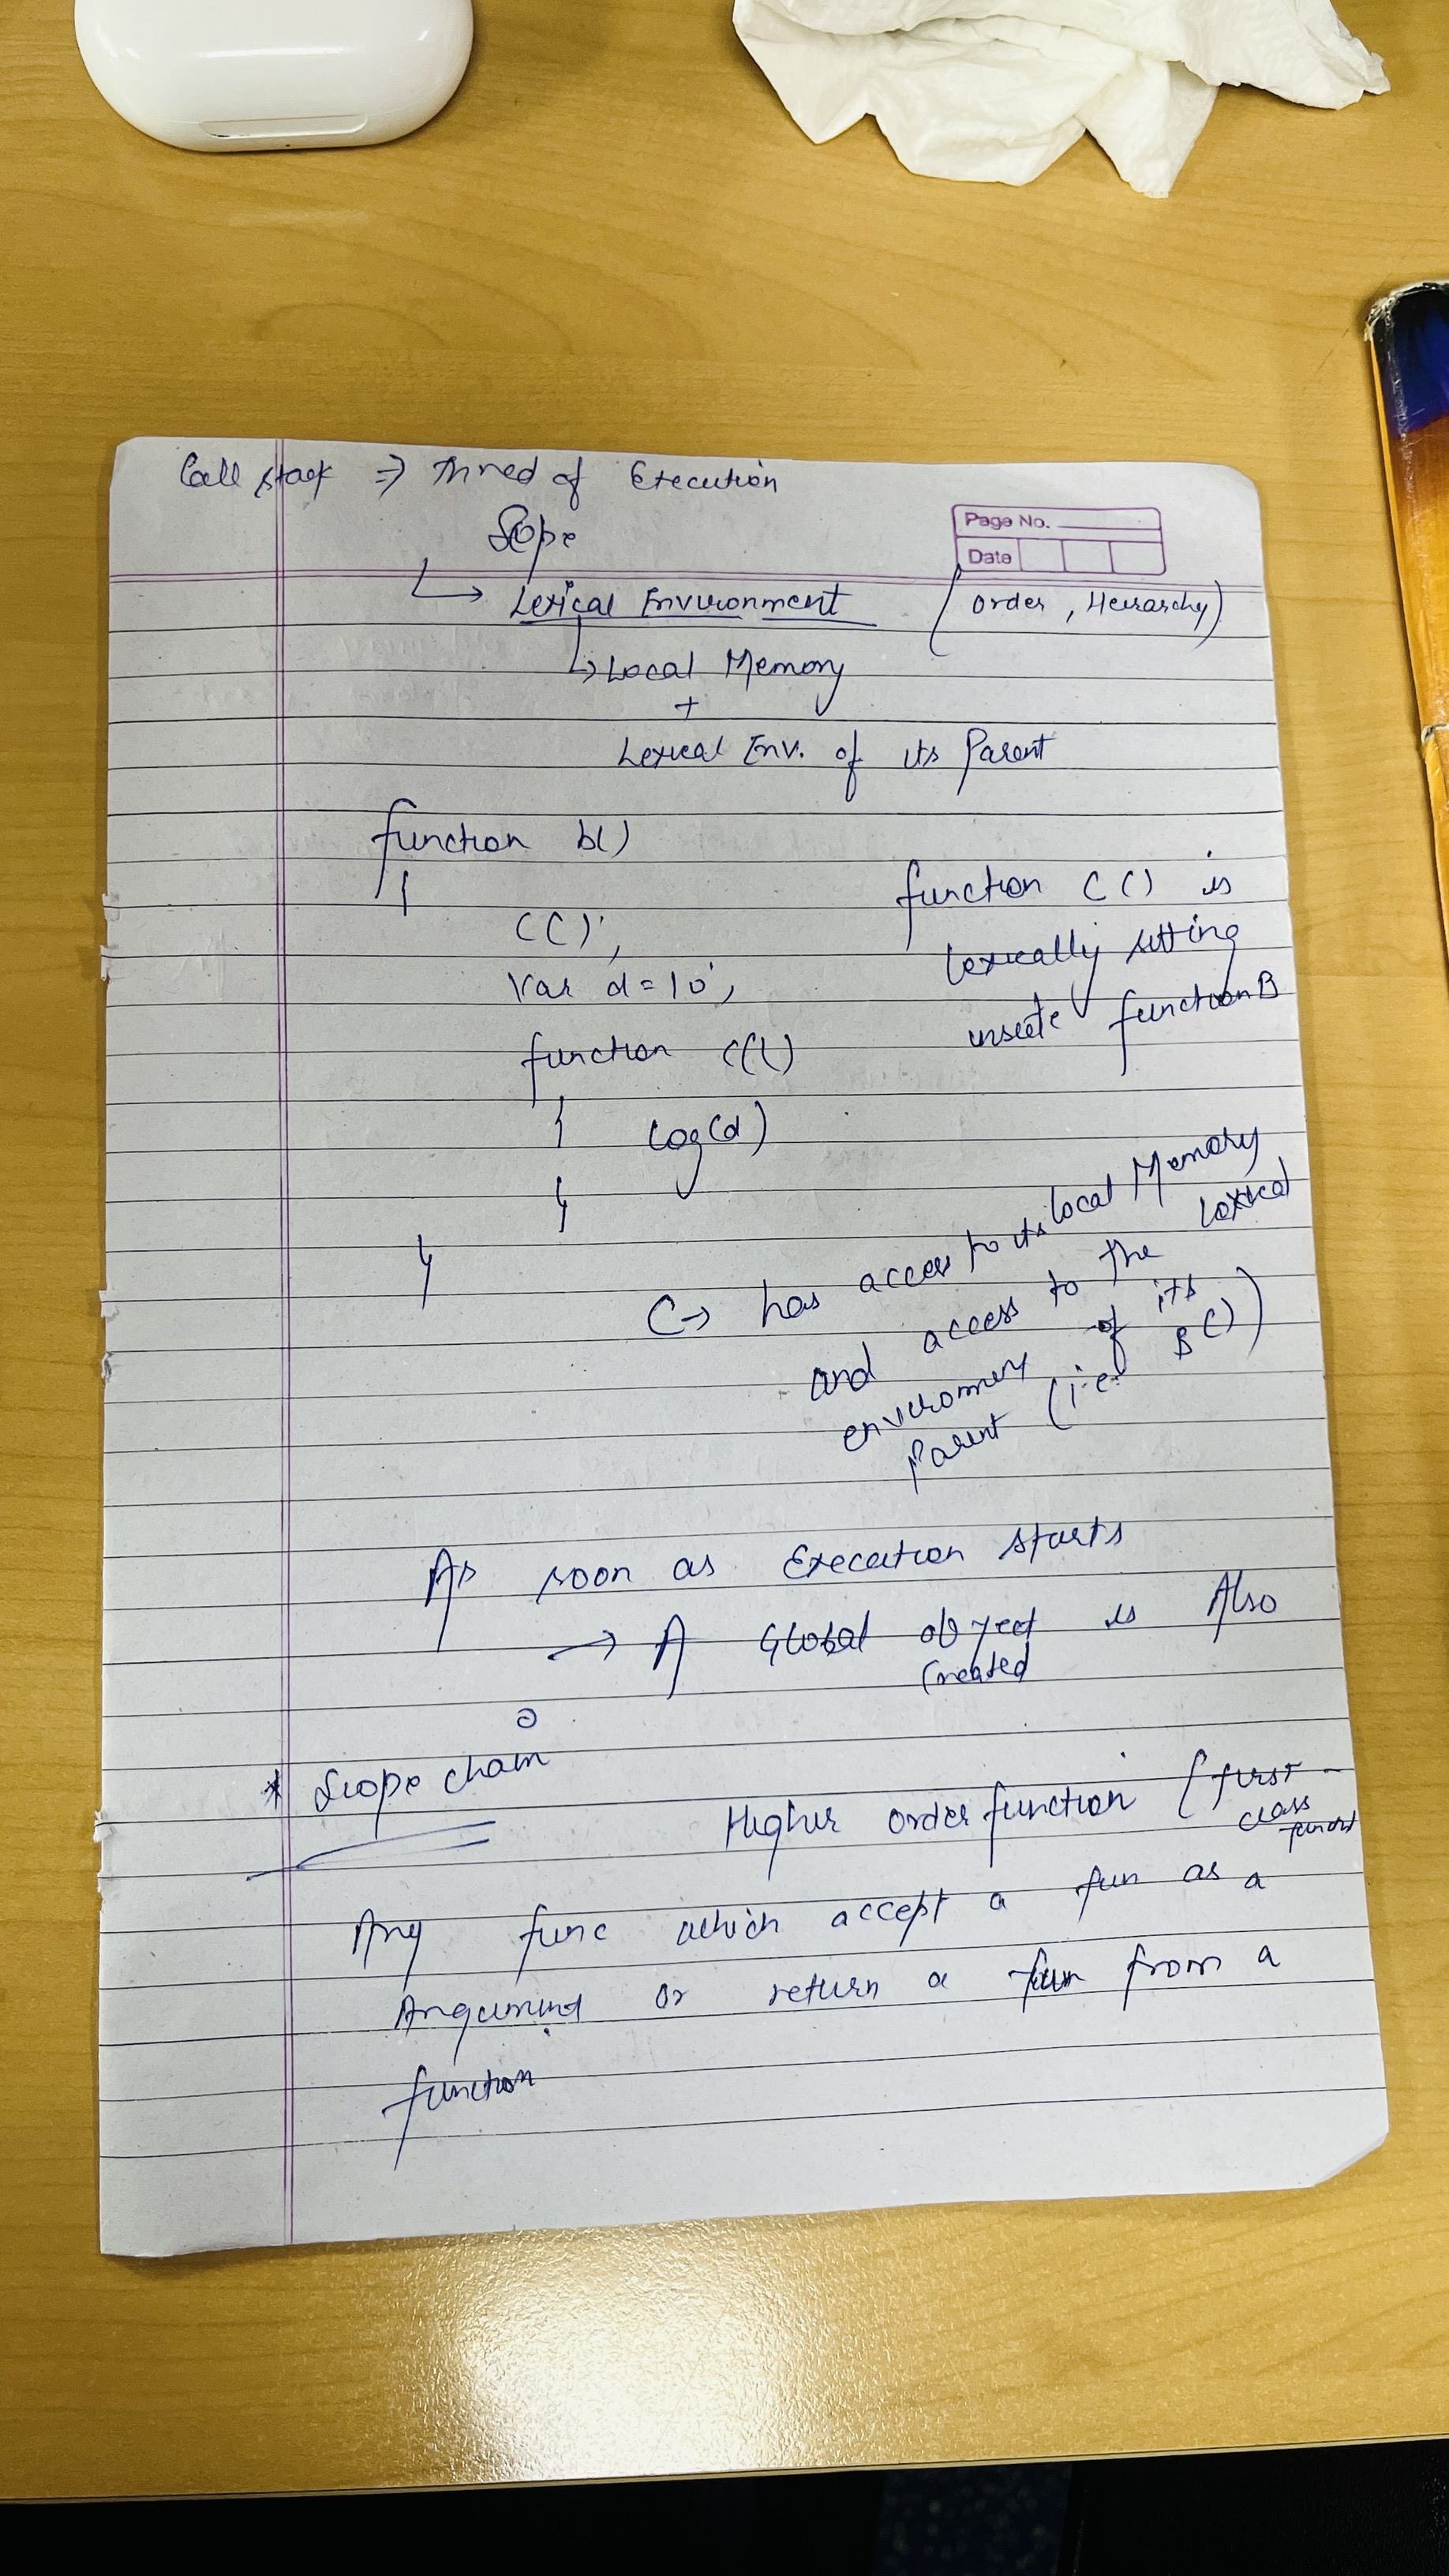 Call stack => Thred of Execution
Scope
Page No.
Date
↳ Lexical Environment (order, Heirarchy)
↳ Local Memory
+
Lexical Env. of its Parent
function b()
{
c();
var d = 10;
function c()
{ log(d)
}
}
function c() is
lexically sitting
inside function B
C → has access to its local Memory
and access to the lexical
environment of its
Parent (i.e. B())
As soon as Execution starts
→ A Global object is Also
created
* Scope chain
Higher order function (first-
class
Any func which accept a fun as a
Argumind or return a fun from a
function